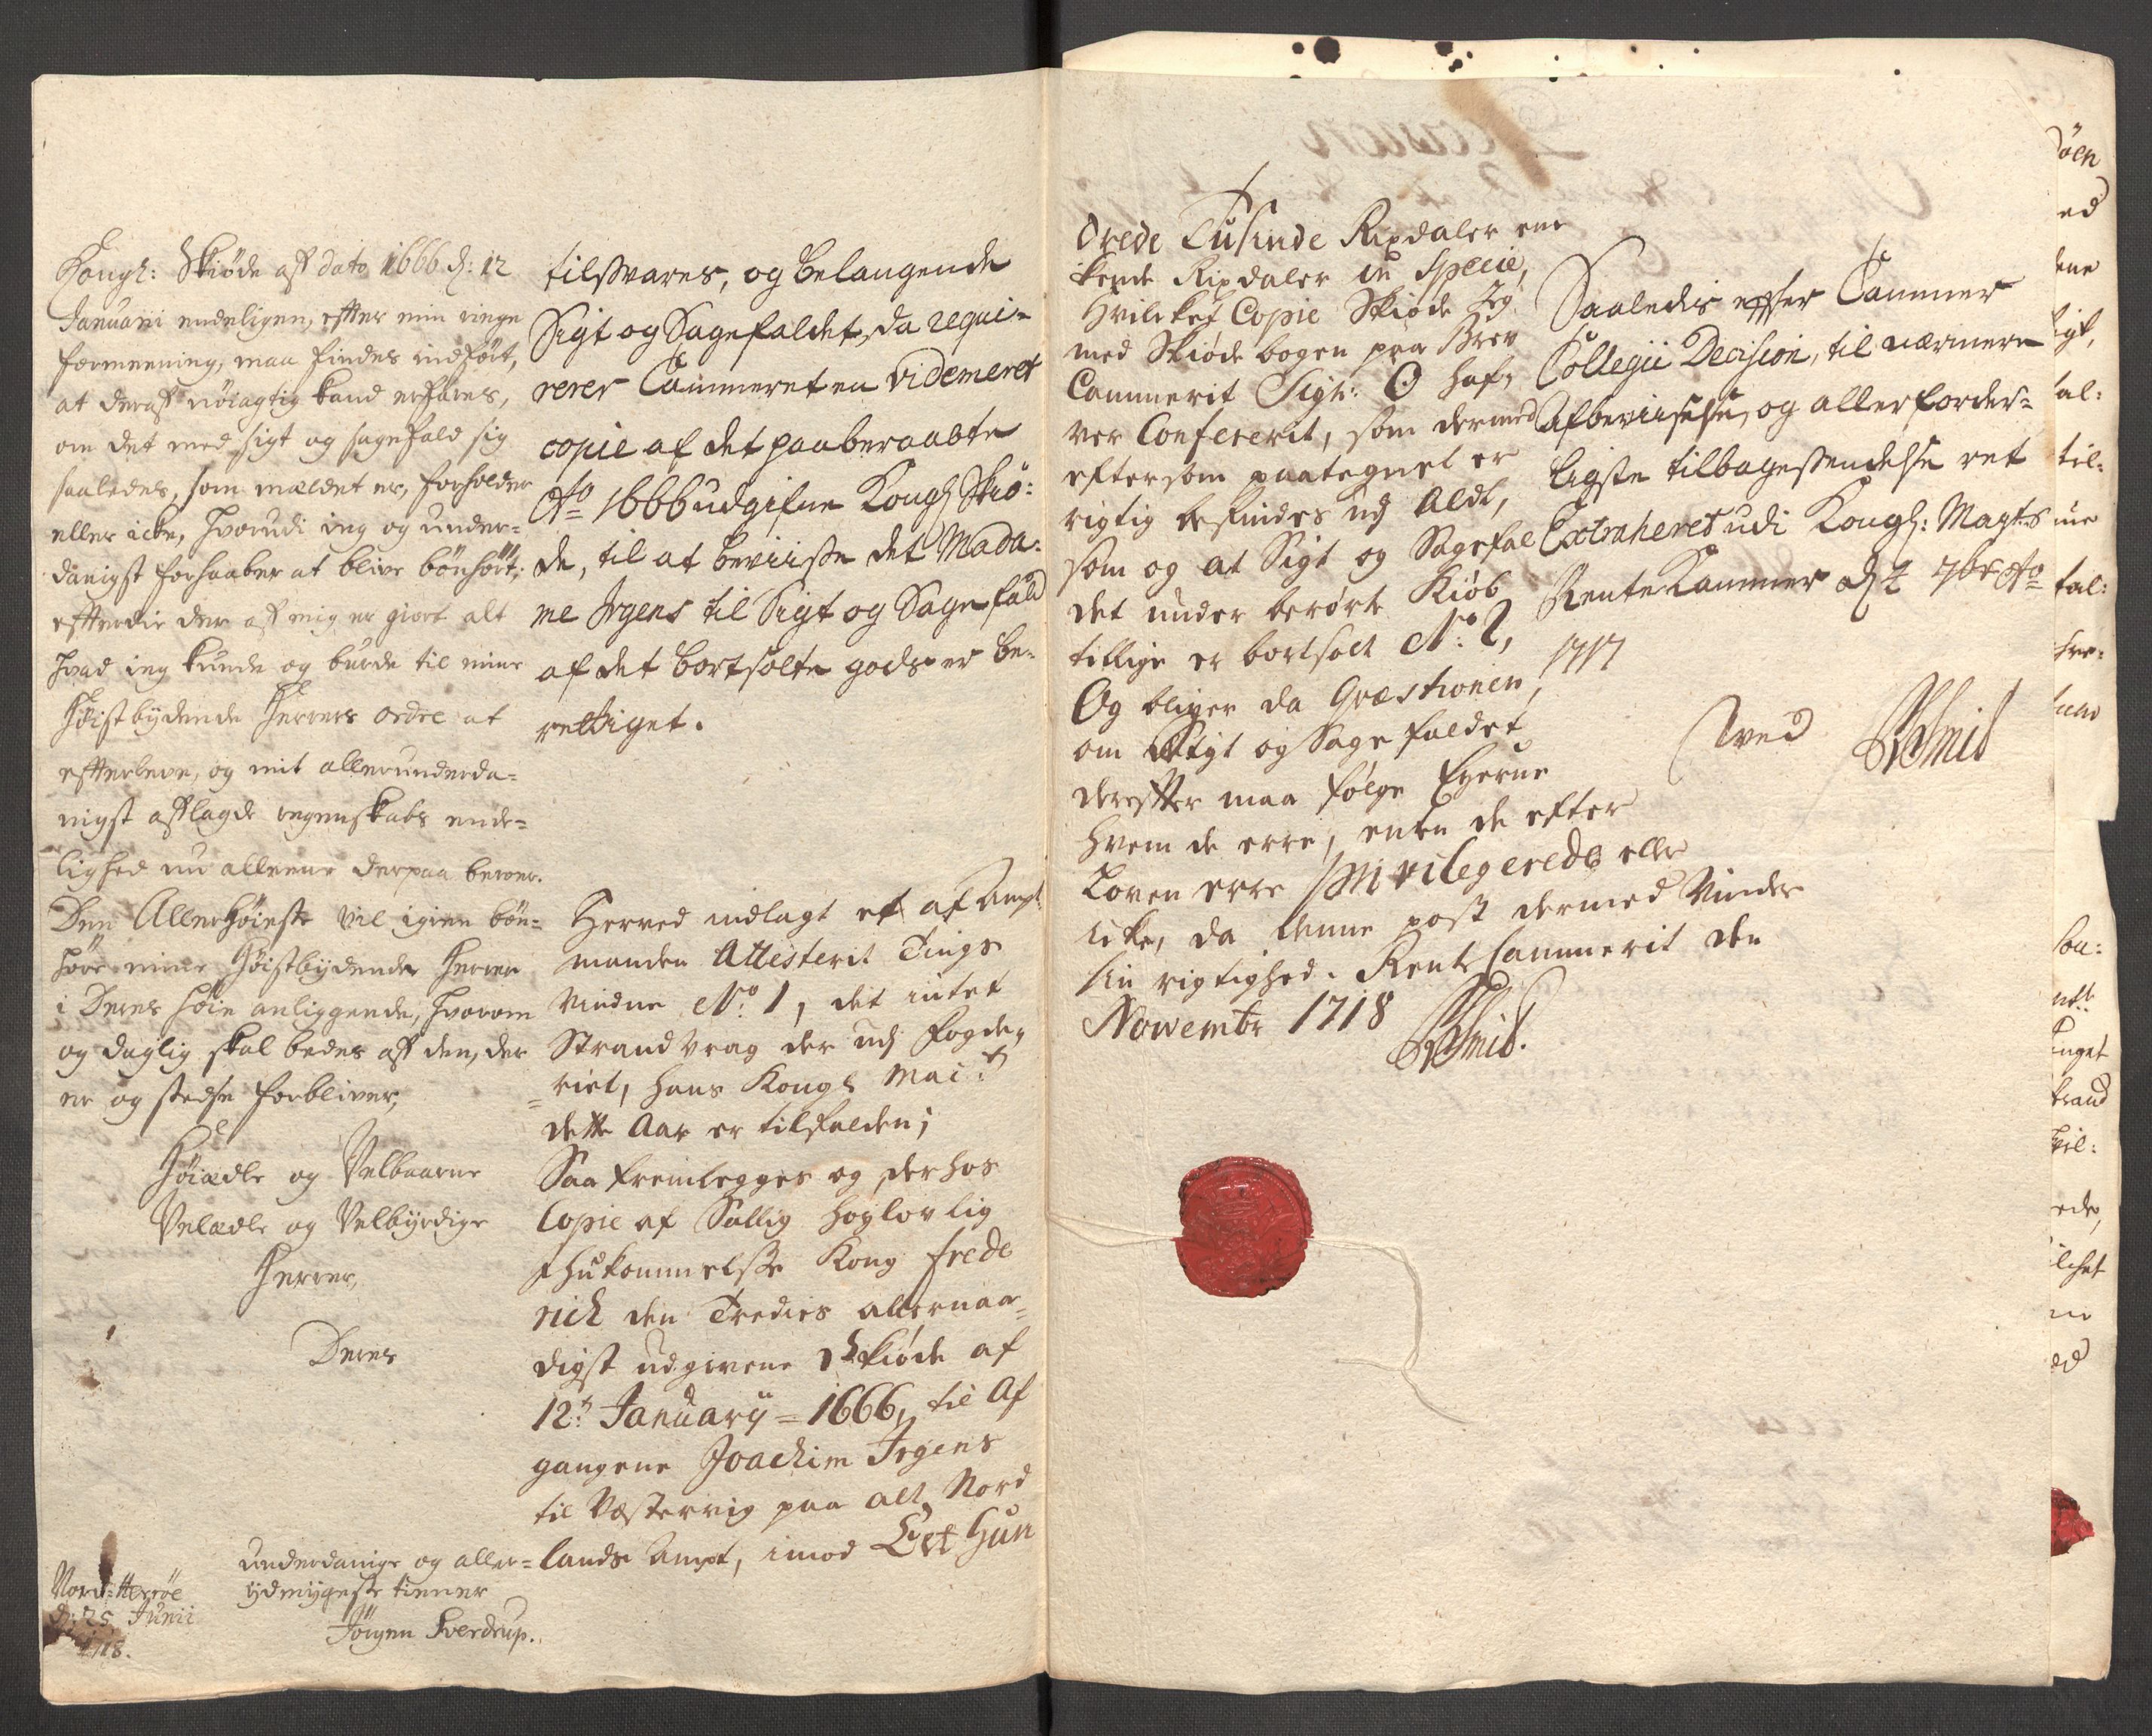 Kongl: Skiøde aff dato 1666 d: 12
Januarii endeligen, effter min ringe
formeening, maa findes indført,
at deraff nøiagtig kand erfares,
om det med sigt og sagefald sig
saaledes, som meldet er, forholder
eller icke, hvorudi ieg og under-
danigst forhaaber at blive bønhørt,
effterdie der aff mig er giort alt
hvad ieg kunde og burde til mine
Høistbydende Herrers ordre at
effterleve, og mit allerunderda-
nigst afflagde regenskabs ende-
lighed nu alleene derpaa beroer.
Den Allerhøieste vil igien bøn-
høre mine Høistbydende Herrer
i Deres høie anliggende, hvorom
og daglig skal bedes aff den, der
er og stedse forbliver,
Høiædle og Velbaarne
Velædle og Velbyrdige
Herrer,
Deres
underdanige og aller-
ydmygeste tiener
Jørgen Sverdrup.
Nord-Herröe
d: 25 Junii
1718.
tilsvares, og belangende
Sigt og Sagefaldet, da requi-
rerer Cammeret en videmeret
copie af det paaberaabte
Ao 1666 udgifne Kongl Skiø-
de, til at beviisse det Mada-
me Irgens til Sigt og Sagefald
af det bortsolte gods er be-
rettiget.
Herved indlagt et af Ampt
manden Attesterit Tings
vindne No. 1, dit intet
Strand vrag der udj Fogde-
riet, hans Kongl Mai:
dette Aar er tilfalden;
Saa fremlegges og derhos
Copie af Sallig høylovlig
Ihukommelsse Kong frede
rich den Tredies allernaa-
digst udgivene Skiøde af
12: January = 1666, til Af
gangene Joachim Irgens
til Vestervig paa alt Nord
lands Ampt, imod Et Hun
drede Tusinde Rixdaler
Rixdaler in Specie,
Hvilcket Copie Skiøde Jeg
med Skiøde bogen paa Brev
Cammerit Sign: O haf-
ver Confererit, som dermed
eftersom paategnet er
rigtig befindes udj Aldt,
som og at Sigt og Sagefal
det under berørte Kiøb
tillige er bortsolt No: 2,
Og bliver da Qvæstionen,
om Sigt og Sagefaldet
dereffter maa følge Eyerne
hvem de erre, enten de efter
Loven erre privilegerede eller
icke, da denne post dermed vinder
sin rigtighed. Rente Cammerit den
Novembr 1718
Saaledis effter Cammer
Collegii Decision, til nærmere
Afbeviiselse, og allerforder-
ligste tilbagesendelse ret
Extraheret udi Kongl: Mayts
RenteKammer d 7br Ao
1717
ved